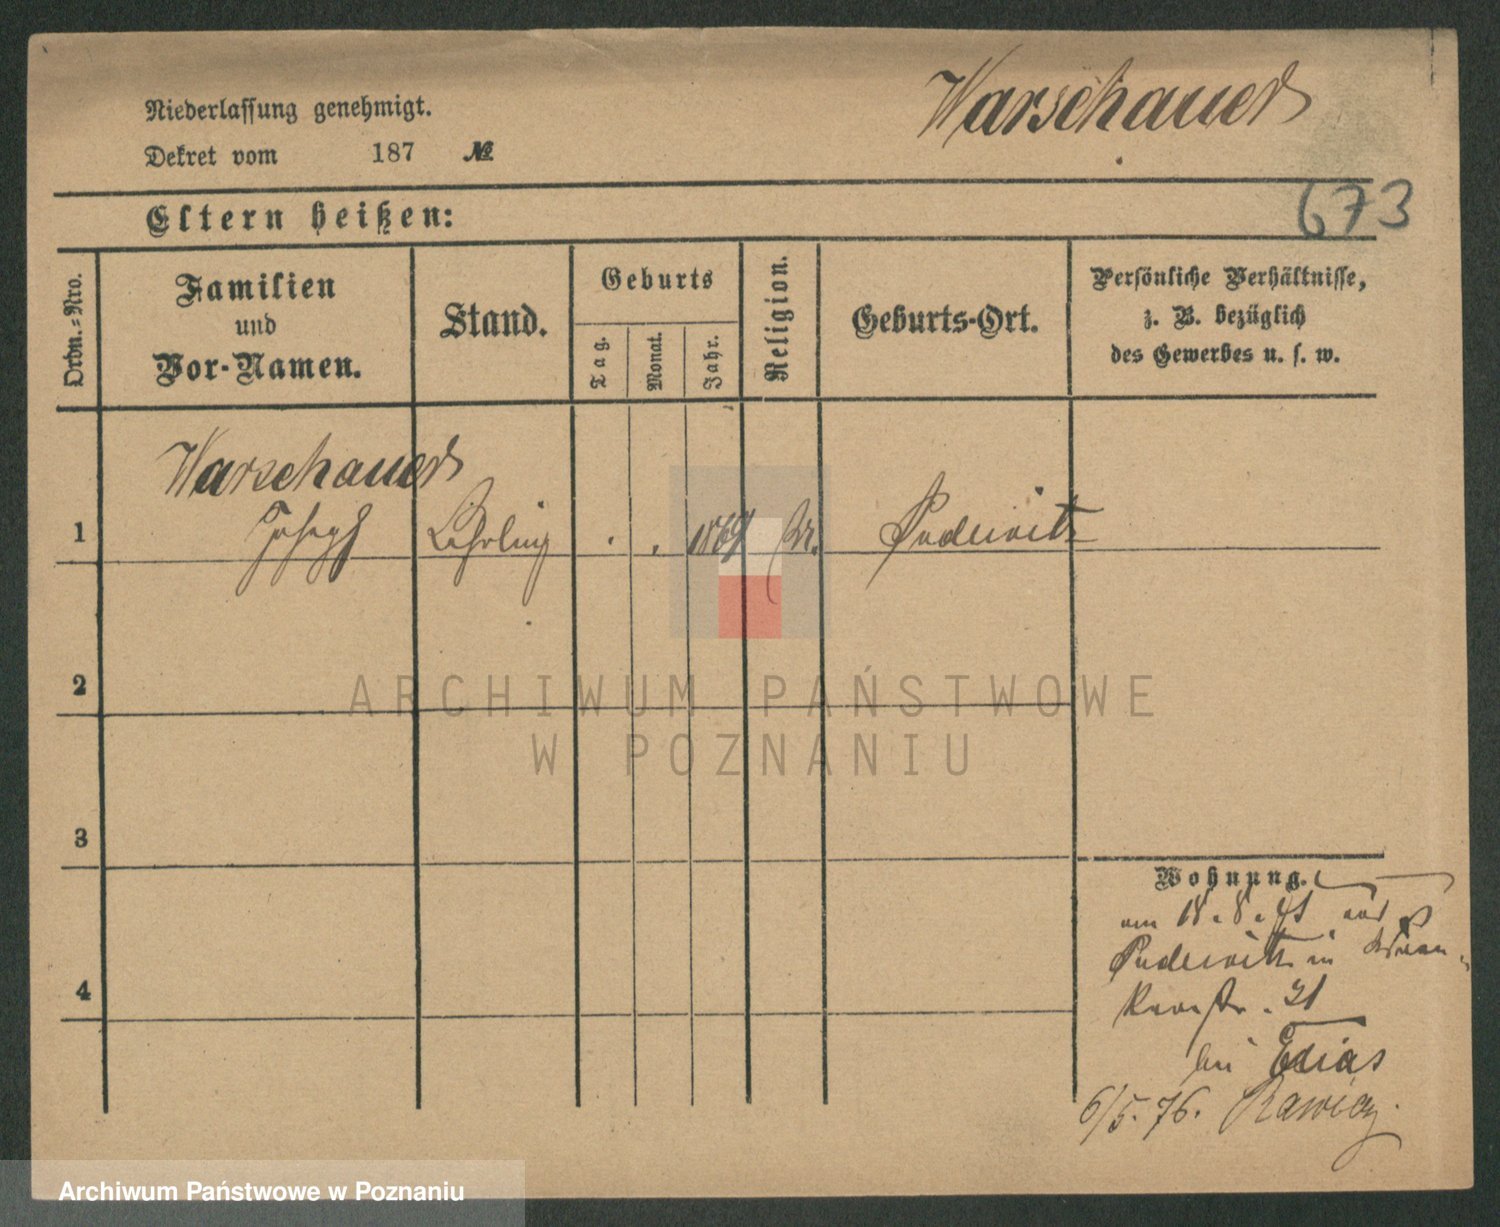 Warschauer
Niederlassung genehmigt.
Dekret vom 187 №
673
Eltern heißen:
Ordn.-Nro.
Familien
und
Vor-Namen.
Stand.
Geburts
Tag.
Monat.
Jahr.
Religion.
Geburts-Ort.
Persönliche Verhältnisse,
z. B. bezüglich
des Gewerbes u. s. w.
Warschauer
1 Joseph Lehrling . . 1869 Pudewitz
2
3
4
Wohnung.
am 18. 8.
Pudewitz in
str. 21
bei Elias
6/5. 76. Rawicz
ARCHIWUM PAŃSTWOWE
W POZNANIU
Archiwum Państwowe w Poznaniu